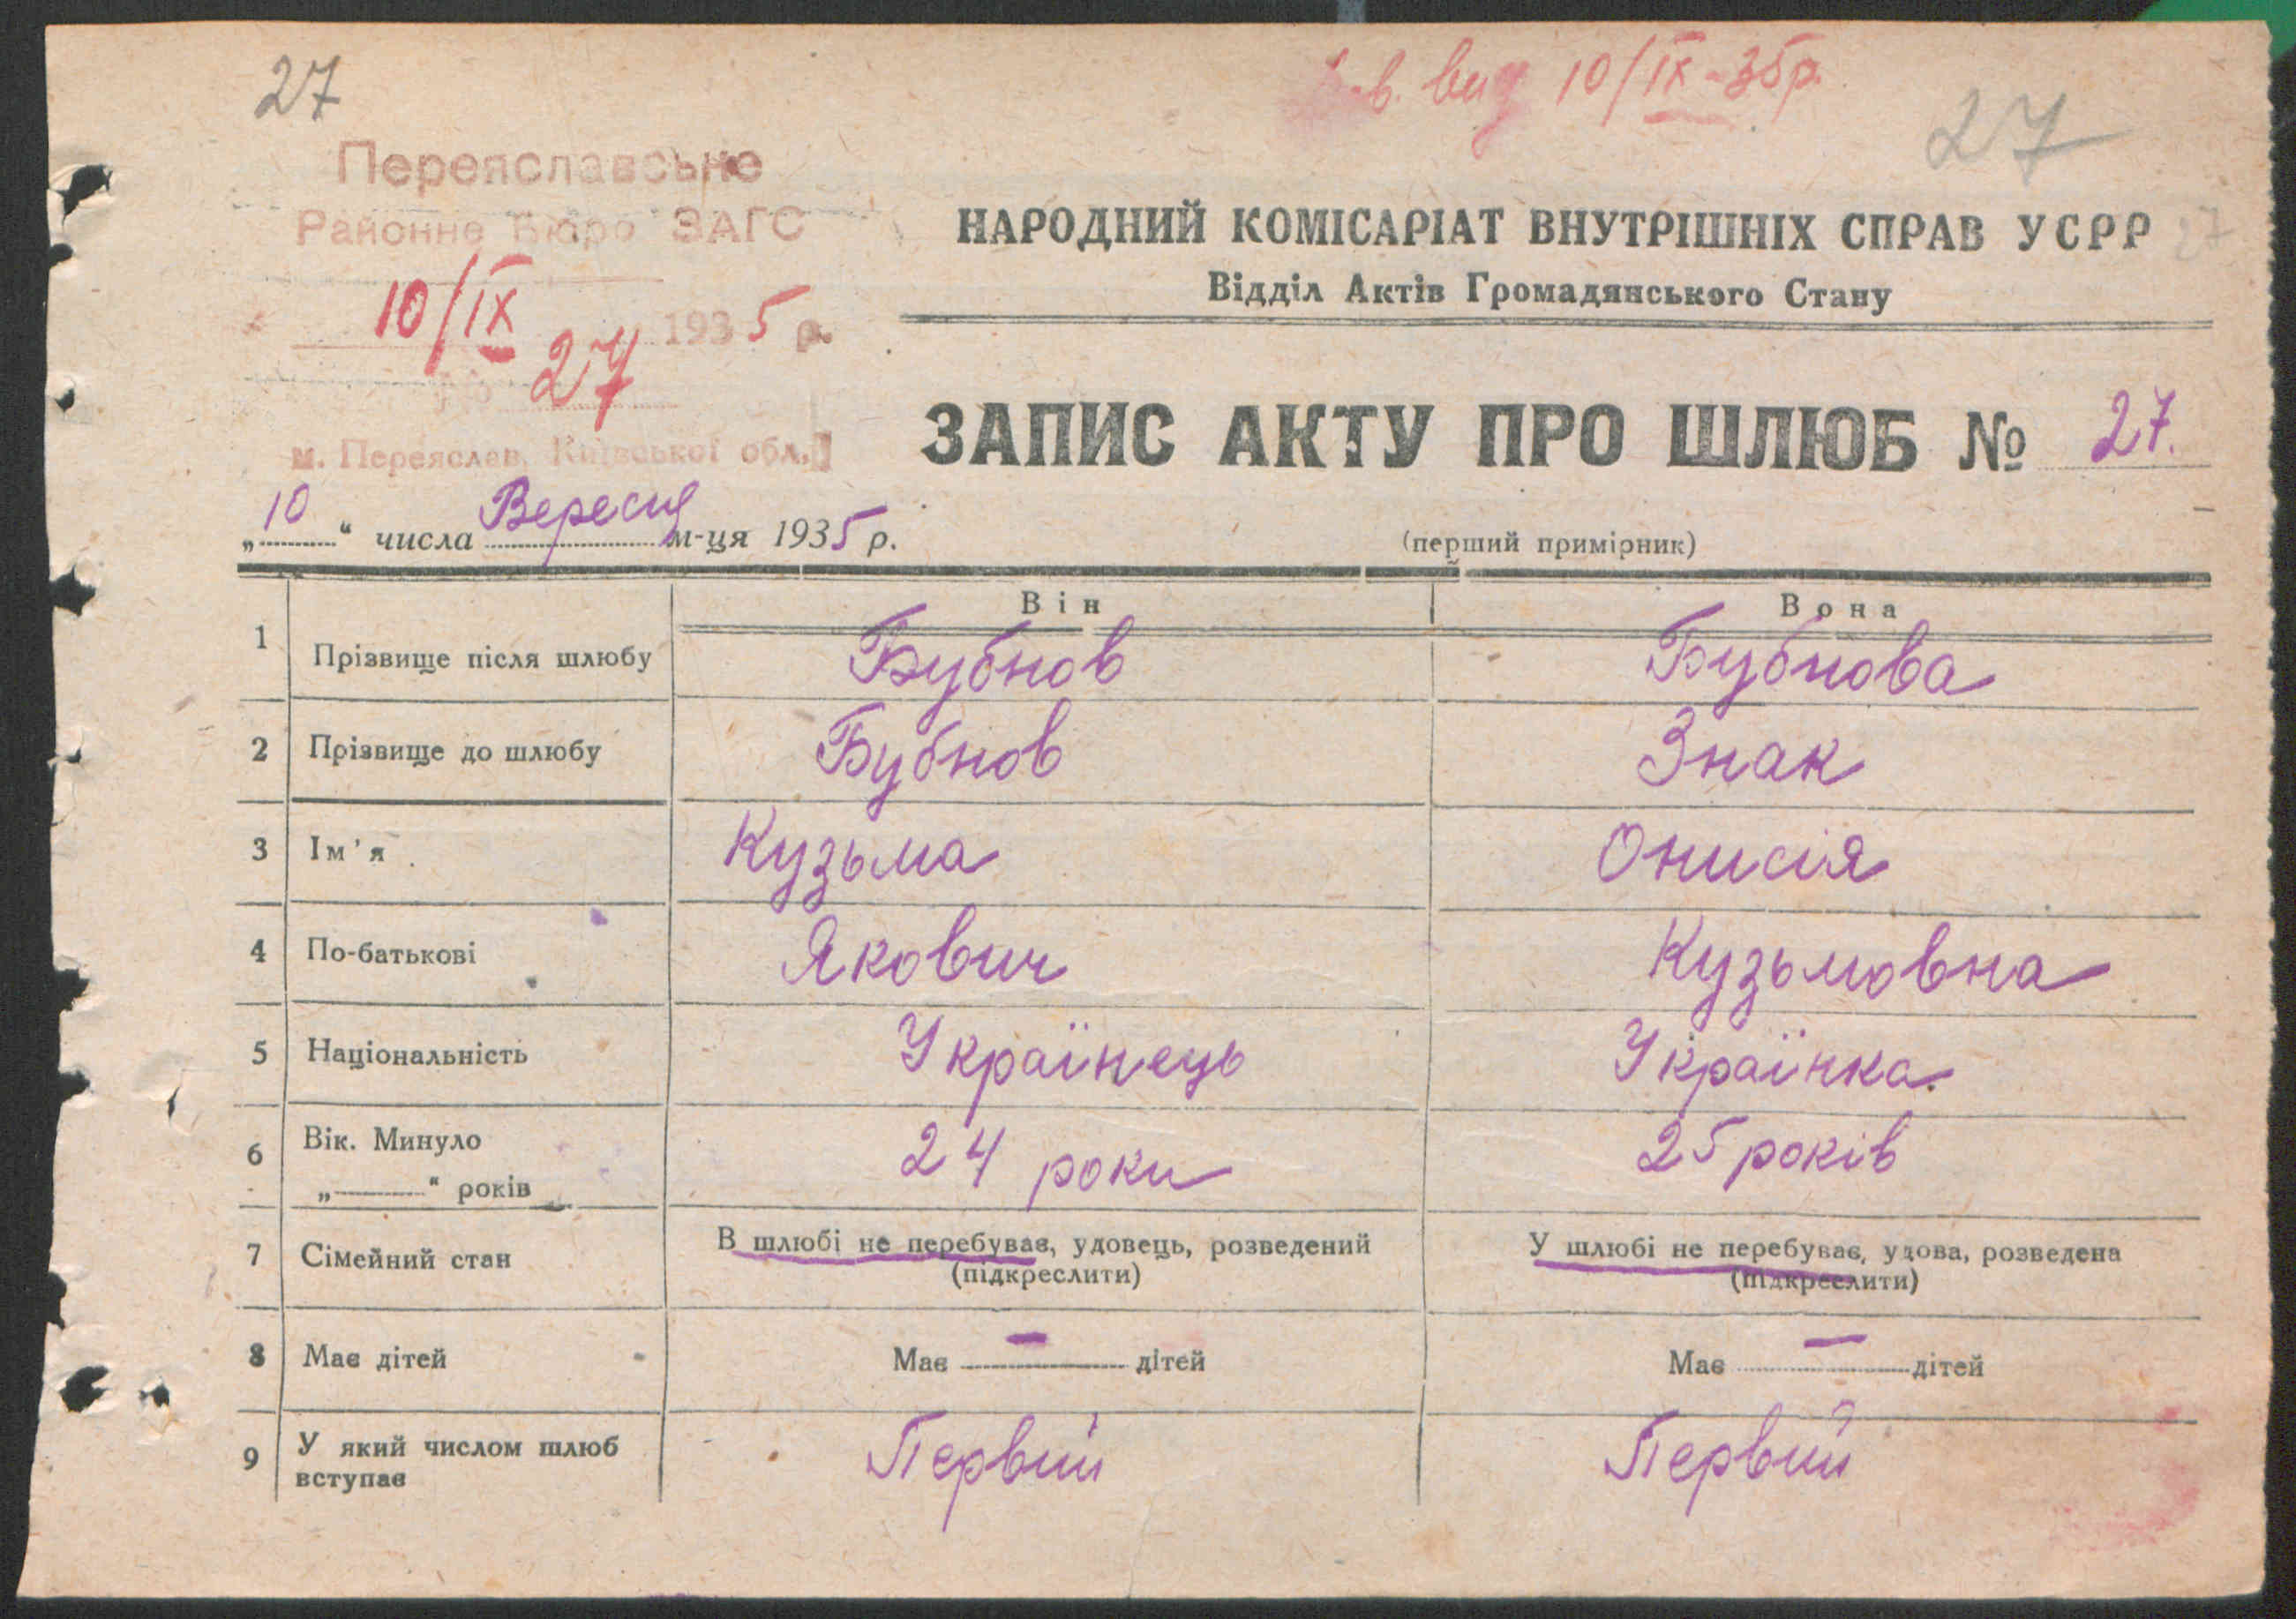 27
в. вид 10/IX-35р.
27
Переяславське
Районне Бюро ЗАГС
10/IX 1935 р.
№ 27
м. Переяслав, Київської обл.
НАРОДНИЙ КОМІСАРІАТ ВНУТРІШНІХ СПРАВ УСРР 27
Відділ Актів Громадянського Стану
ЗАПИС АКТУ ПРО ШЛЮБ № 27.
„10“ числа Вересня м-ця 1935 р.
(перший примірник)
Він Вона
1 Прізвище після шлюбу Бубнов Бубнова
2 Прізвище до шлюбу Бубнов Знак
3 Ім'я Кузьма Онисія
4 По-батькові Якович Кузьмовна
5 Національність Українець Українка.
6 Вік. Минуло 24 роки 25 років
„——“ років
7 Сімейний стан В шлюбі не перебуває, удовець, розведений У шлюбі не перебуває, удова, розведена
(підкреслити) (підкреслити)
8 Має дітей Має — дітей Має — дітей
9 У який числом шлюб Первий Первий
вступає